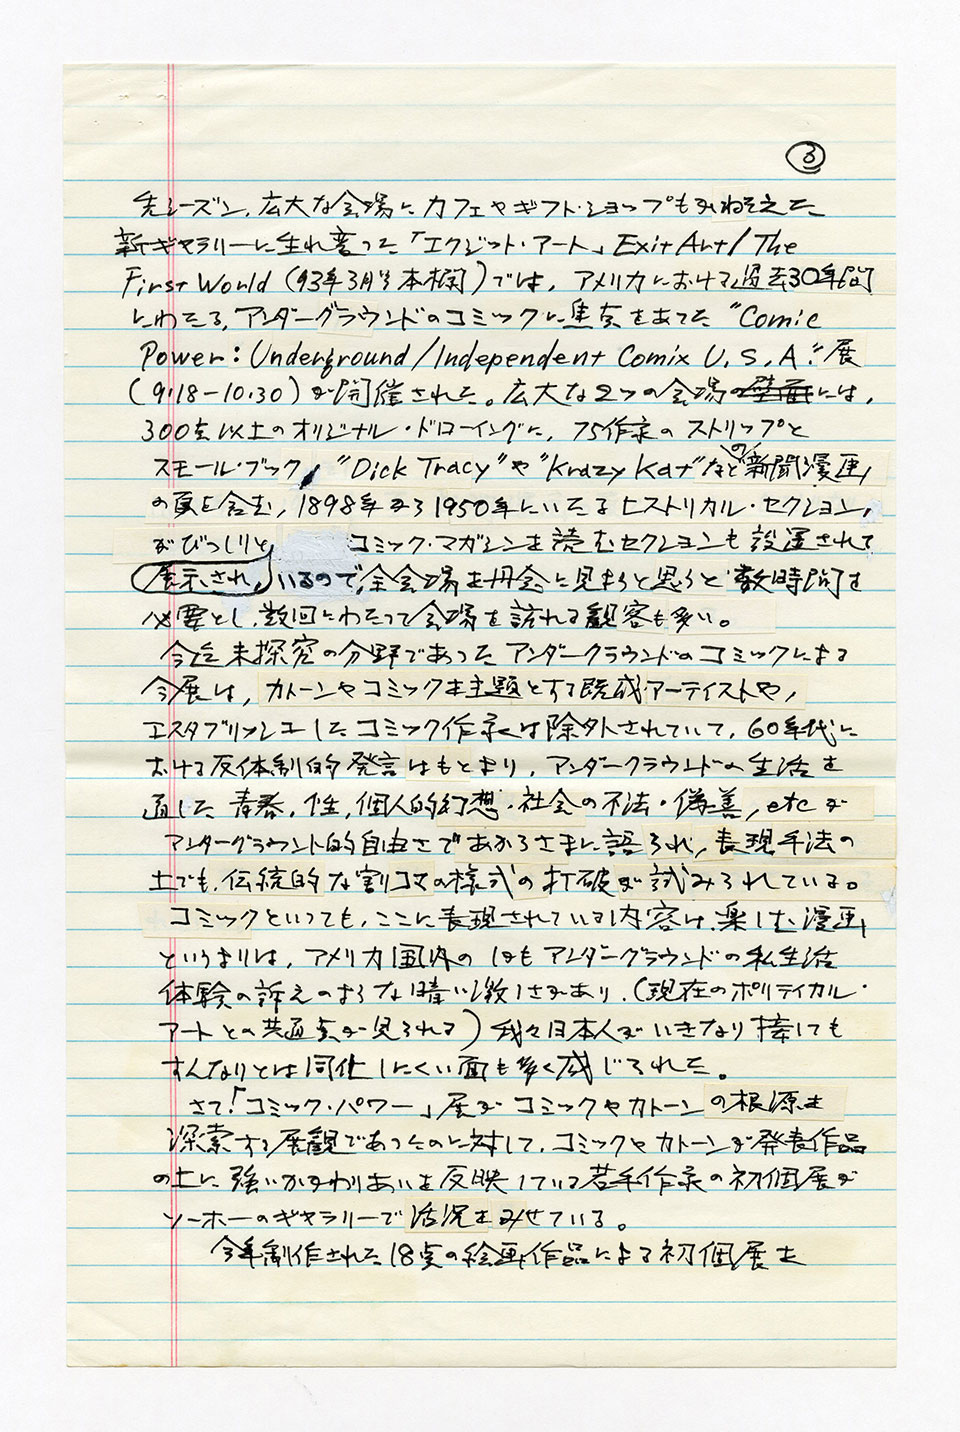 ③
先シーズン、広大な会場にカフェやギフト・ショップもかねそえた
新ギャラリーに生れ変った「エクジット・アート」Exit Art/The
First World (93年3月号本欄)では、アメリカにおける過去30年間
にわたる、アンダーグラウンドのコミックに焦点をあてた "Comic
Power: Underground/Independent Comix U.S.A."展
(9.18-10.30)が開催された。広大な2つの会場には、
300点以上のオリジナル・ドローイングに、75作家のストリップと
スモール・ブック, "Dick Tracy"や"Krazy Kat"などの新聞漫画
の頁を含む, 1898年から1950年にいたるヒストリカル・セクション,
がびっしりと コミック・マガジンを読むセクションも設置されて
展示され, いるので,全会場を丹念に見ようと思うと数時間を
必要とし,数回にわたって会場を訪れる観客も多い。
今迄未探究の分野であったアンダーグラウンドのコミックによる
今展は, カトーンやコミックを主題とする既成アーティストや,
エスタブリッシュしたコミック作家は除外されていて, 60年代に
おける反体制的発言はもとより, アンダーグラウンドの生活を
通した青春, 性, 個人的幻想・社会の不法・偽善, etcが
アンダーグラウンド的自由さであからさまに語られ, 表現手法の
上でも, 伝統的な割コマの様式の打破が試みられている。
コミックといっても, ここに表現されている内容は, 楽しむ漫画
というよりは, アメリカ国内の アンダーグラウンドの私生活
体験の訴えのような暗い激しさがあり, (現在のポリティカル・
アートとの共通点が見られる)我々日本人がいきなり接しても
すんなりとは同化しにくい面も多く感じられた。
さて「コミック・パワー」展がコミックやカトーンの根源を
探索する展観であったのに対して, コミックやカトーンが発表作品
の上に強いかかわりあいを反映している若手作家の初個展が
ソーホーのギャラリーで活況をみせている。
今年制作された18点の絵画作品による初個展を